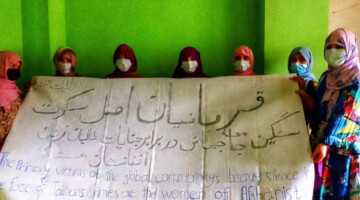 قربانیان اصل سکوت
سنگین جامعه جهانی در برابر جنایات طالبان زنان
افغانستان هستند
The Primary victims of the global community's heavy silence in
face of Taliban's crimes are the women of Afghanist